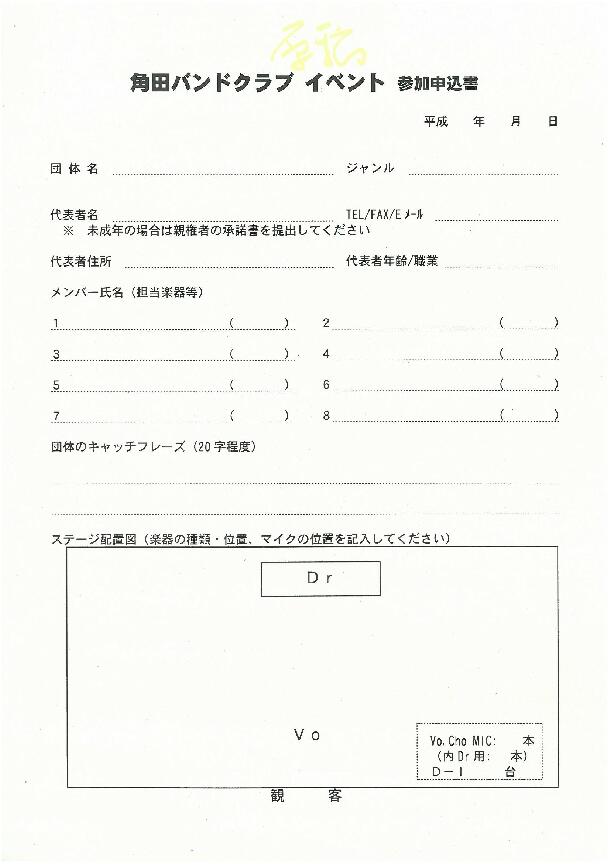 原稿
角田バンドクラブ イベント 参加申込書
平成　　年　　月　　日
団 体 名　　ジャンル
代表者名　　TEL/FAX/Eメール
※　未成年の場合は親権者の承諾書を提出してください
代表者住所　　代表者年齢/職業
メンバー氏名（担当楽器等）
1　　（　　）　2　　（　　）
3　　（　　）　4　　（　　）
5　　（　　）　6　　（　　）
7　　（　　）　8　　（　　）
団体のキャッチフレーズ（20字程度）
ステージ配置図（楽器の種類・位置、マイクの位置を記入してください）
Ｄｒ
Ｖｏ
Vo.Cho MIC:　　本
（内Dr用:　　本）
Ｄ－Ｉ　　台
観　　客